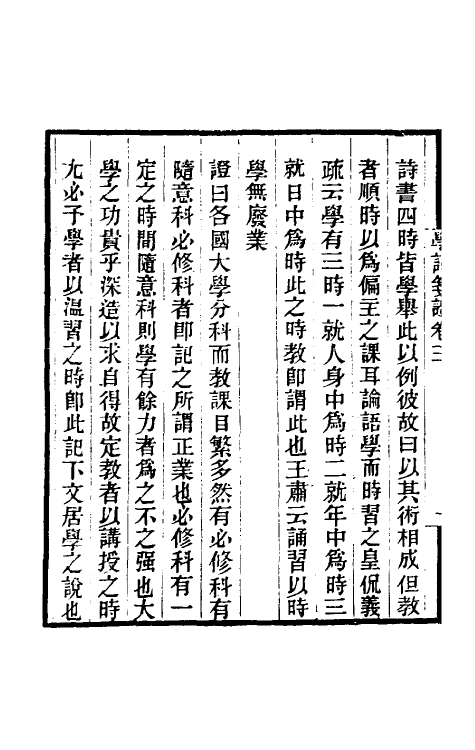 學記箋證卷三
詩書四時皆學舉此以例彼故曰以其術相成但教
者順時以爲偏主之課耳論語學而時習之皇侃義
疏云學有三時一就人身中爲時二就年中爲時三
就日中爲時此之時教卽謂此也王肅云誦習以時
學無廢業
證曰各國大學分科而教課目繁多然有必修科有
隨意科必修科者卽記之所謂正業也必修科有一
定之時間隨意科則學有餘力者爲之不之强也大
學之功貴乎深造以求自得故定教者以講授之時
尤必予學者以温習之時卽此記下文居學之說也